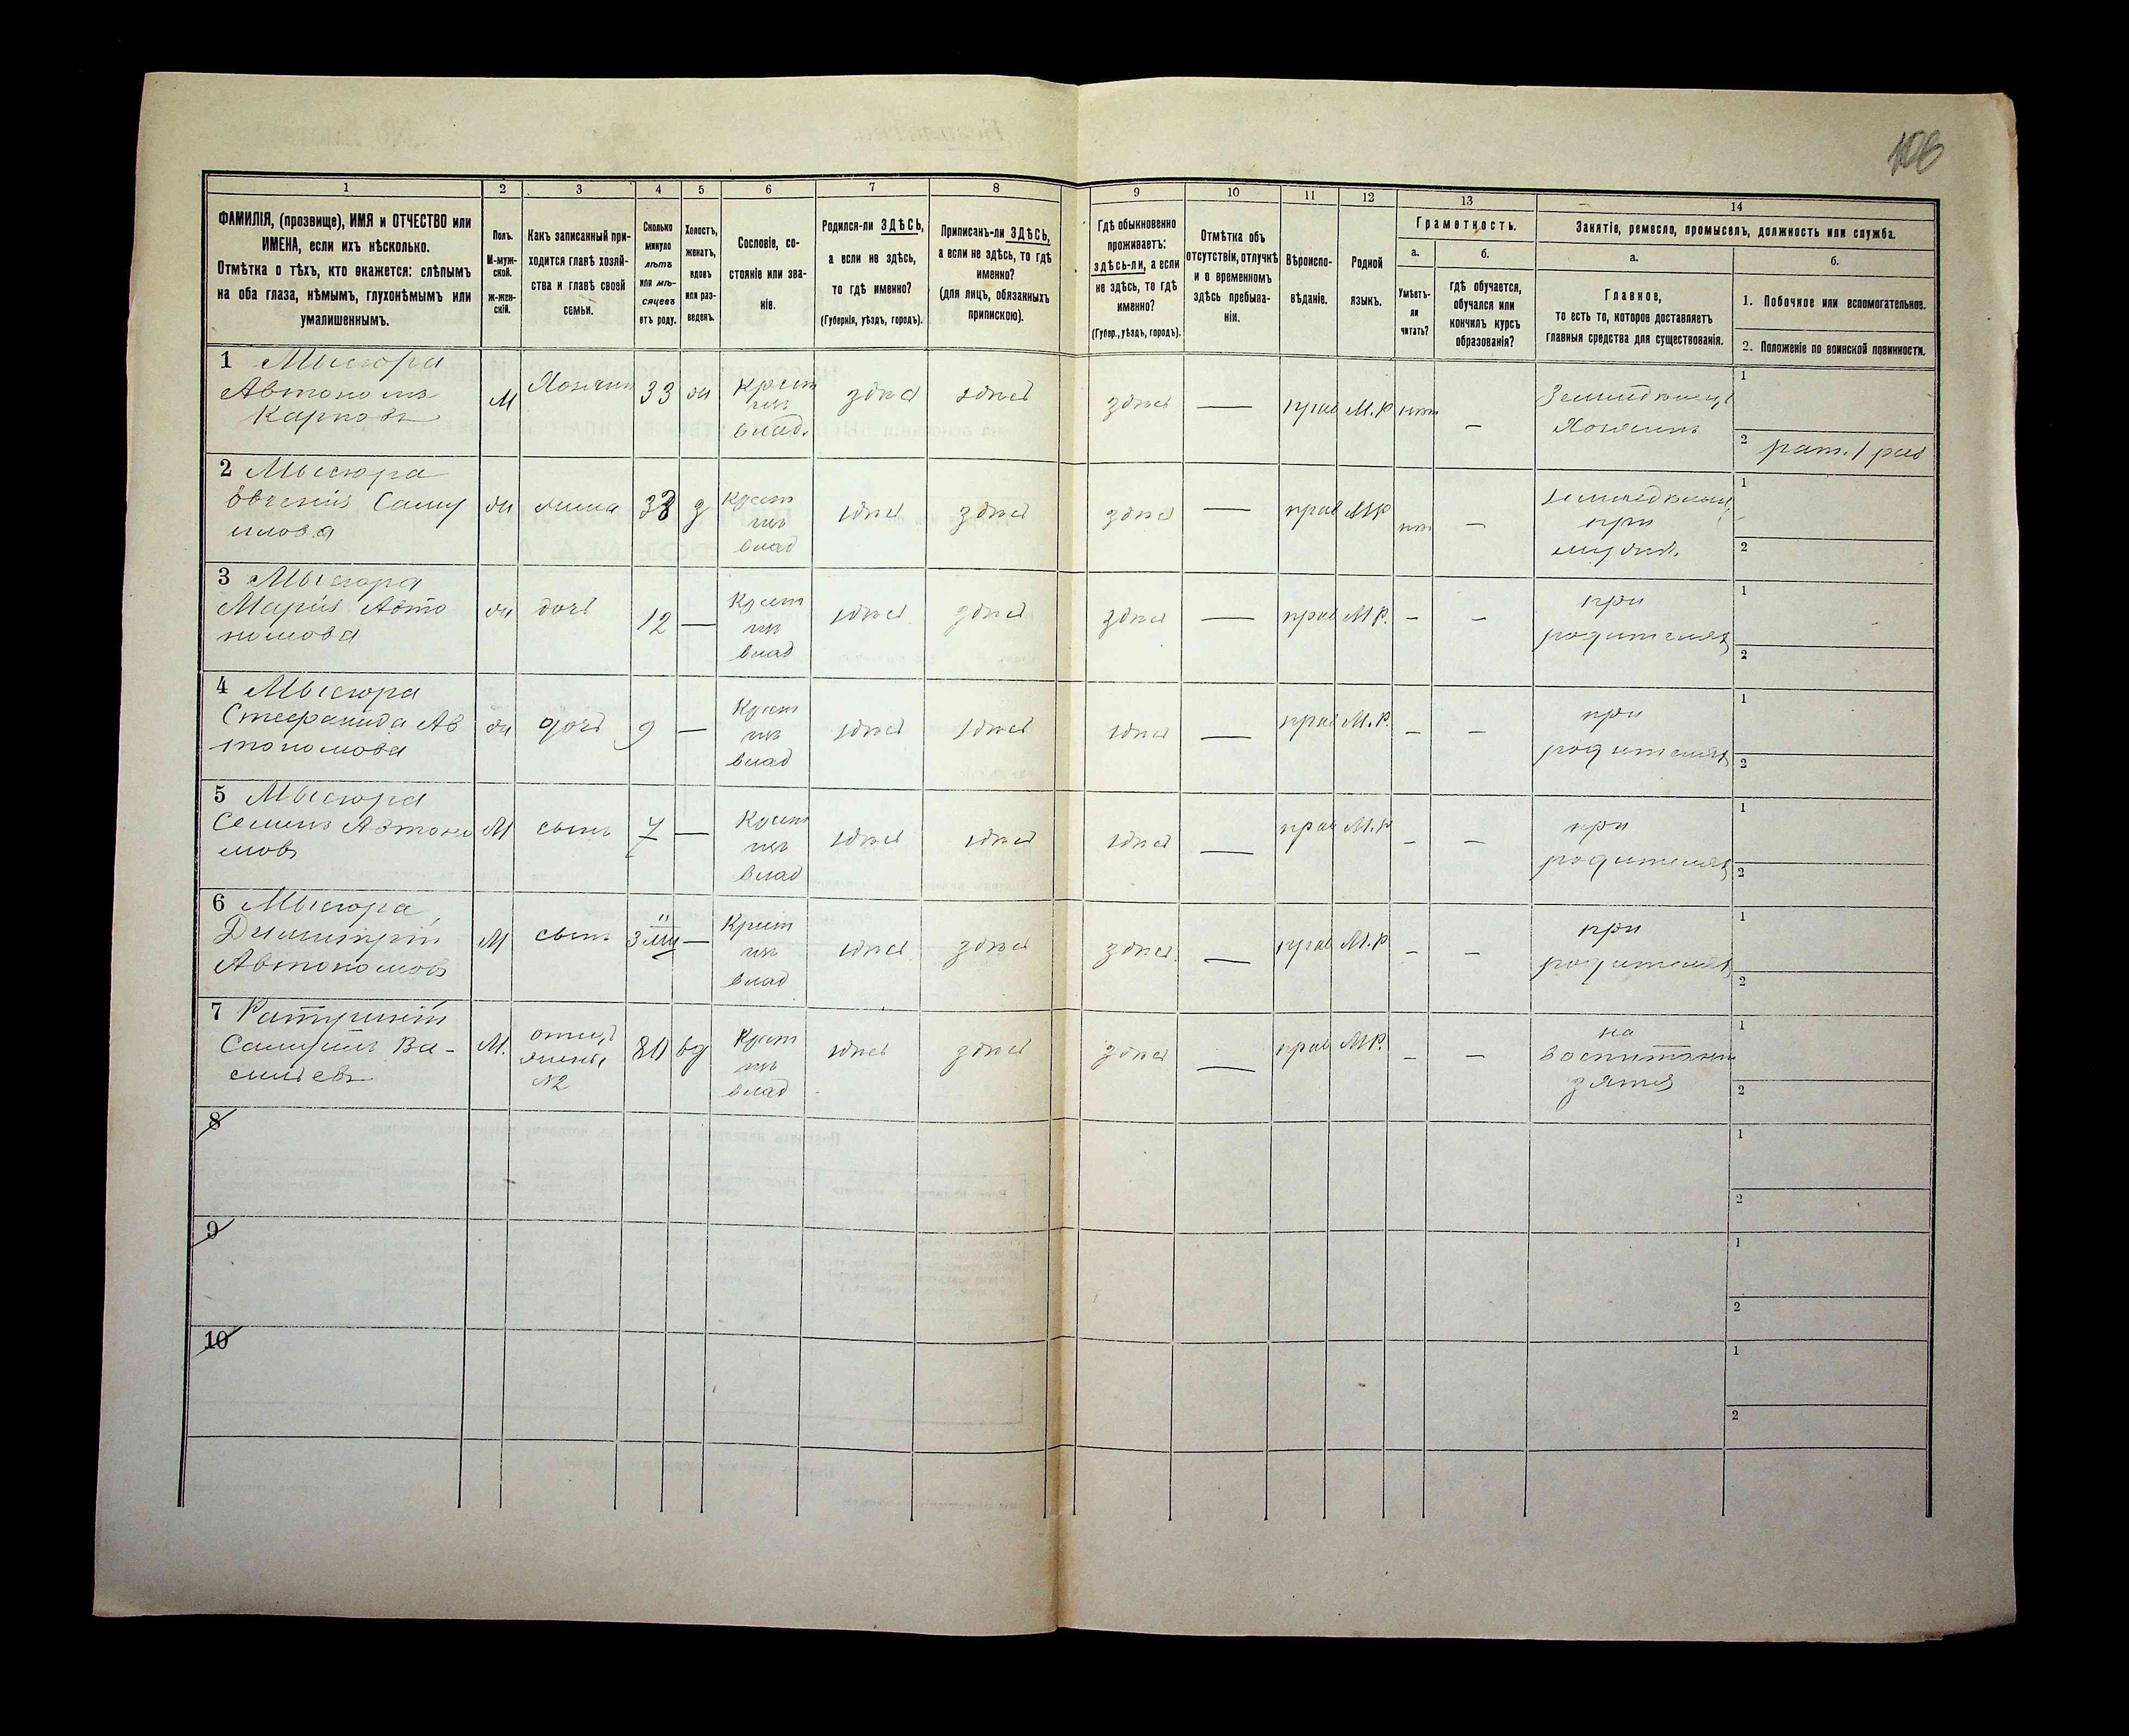 106
1 2 3 4 5 6 7 8 9 10 11 12 13 14
ФАМИЛІЯ, (прозвище), ИМЯ и ОТЧЕСТВО или
ИМЕНА, если ихъ нѣсколько.
Отмѣтка о тѣхъ, кто окажется: слѣпымъ
на оба глаза, нѣмымъ, глухонѣмымъ или
умалишеннымъ.
Полъ.
М-муж-
ской.
ж-жен-
скій.
Какъ записанный при-
ходится главѣ хозяй-
ства и главѣ своей
семьи.
Сколько
минуло
лѣтъ
или мѣ-
сяцевъ
отъ роду.
Холостъ,
женатъ,
вдовъ
или раз-
веденъ.
Сословіе, со-
стояніе или зва-
ніе.
Родился-ли ЗДѢСЬ,
а если не здѣсь,
то гдѣ именно?
(Губернія, уѣздъ, городъ).
Приписанъ-ли ЗДѢСЬ,
а если не здѣсь, то гдѣ
именно?
(для лицъ, обязанныхъ
припискою).
Гдѣ обыкновенно
проживаетъ:
здѣсь-ли, а если
не здѣсь, то гдѣ
именно?
(Губер., уѣздъ, городъ).
Отмѣтка объ
отсутствіи, отлучкѣ
и о временномъ
здѣсь пребыва-
ніи.
Вѣроиспо-
вѣданіе.
Родной
языкъ.
Грамотность.
а.
Умѣетъ-
ли
читать?
б.
гдѣ обучается,
обучался или
кончилъ курсъ
образованія?
Занятіе, ремесло, промыселъ, должность или служба.
а.
Главное,
то есть то, которое доставляетъ
главныя средства для существованія.
б.
1. Побочное или вспомогательное.
2. Положеніе по воинской повинности.
1 Мысюра
Автономъ
Карповъ
М
Хозяинъ
33
жи
крест
изъ
влад.
здѣсь
здѣсь
здѣсь
—
прав
М.Р
нѣт
—
Земледѣлец
Хозяинъ
1
2 рат. 1 раз
2 Мысюра
Евгенія Саму
илова
жи
жена
38
з
Крест
изъ
влад
здѣсь
здѣсь
здѣсь
—
прав
МР
нѣт
—
при
мужѣ.
1
2
3 Мысюра
Марія Авто
номова
жи
дочь
12
—
Крест
изъ
влад
здѣсь
здѣсь
здѣсь
—
прав
МР.
—
—
при
родителях
1
2
4 Мысюра
Стефанида Ав
тономова
жи
дочь
9
—
Крест
изъ
влад
здѣсь
здѣсь
здѣсь
—
прав
М.Р.
—
—
при
родителях
1
2
5 Мысюра
Семенъ Автоно
мовъ
М
сынъ
7
—
Крест
изъ
влад
здѣсь
здѣсь
здѣсь
—
прав
М.Р
—
—
при
родителях
1
2
6 Мысюра
Димитрій
Автономовъ
М
сынъ
3
—
Крест
изъ
влад
здѣсь
здѣсь
здѣсь
—
прав
М.Р
—
—
при
родителях
1
2
7
Самуилъ Ва-
сильевъ
М.
отец
жены
№2
80
вд
Крест
изъ
влад
здѣсь
здѣсь
здѣсь
—
прав
МР.
—
—
на
воспитани
зятя
1
2
8
1
2
9
1
2
10
1
2